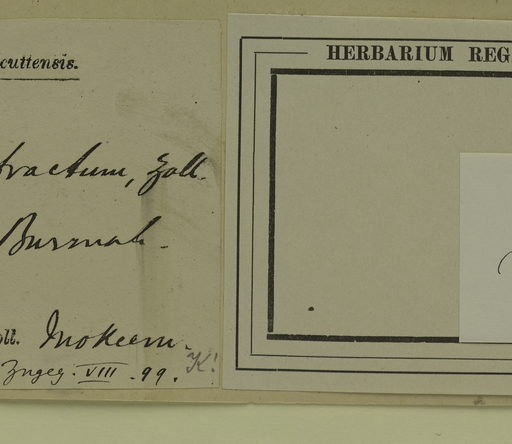 cuttensis.
tractum, Zoll.
Burmah.
oll. Mokeem.
Zngeg. VIII. 99.
K!
HERBARIUM REG